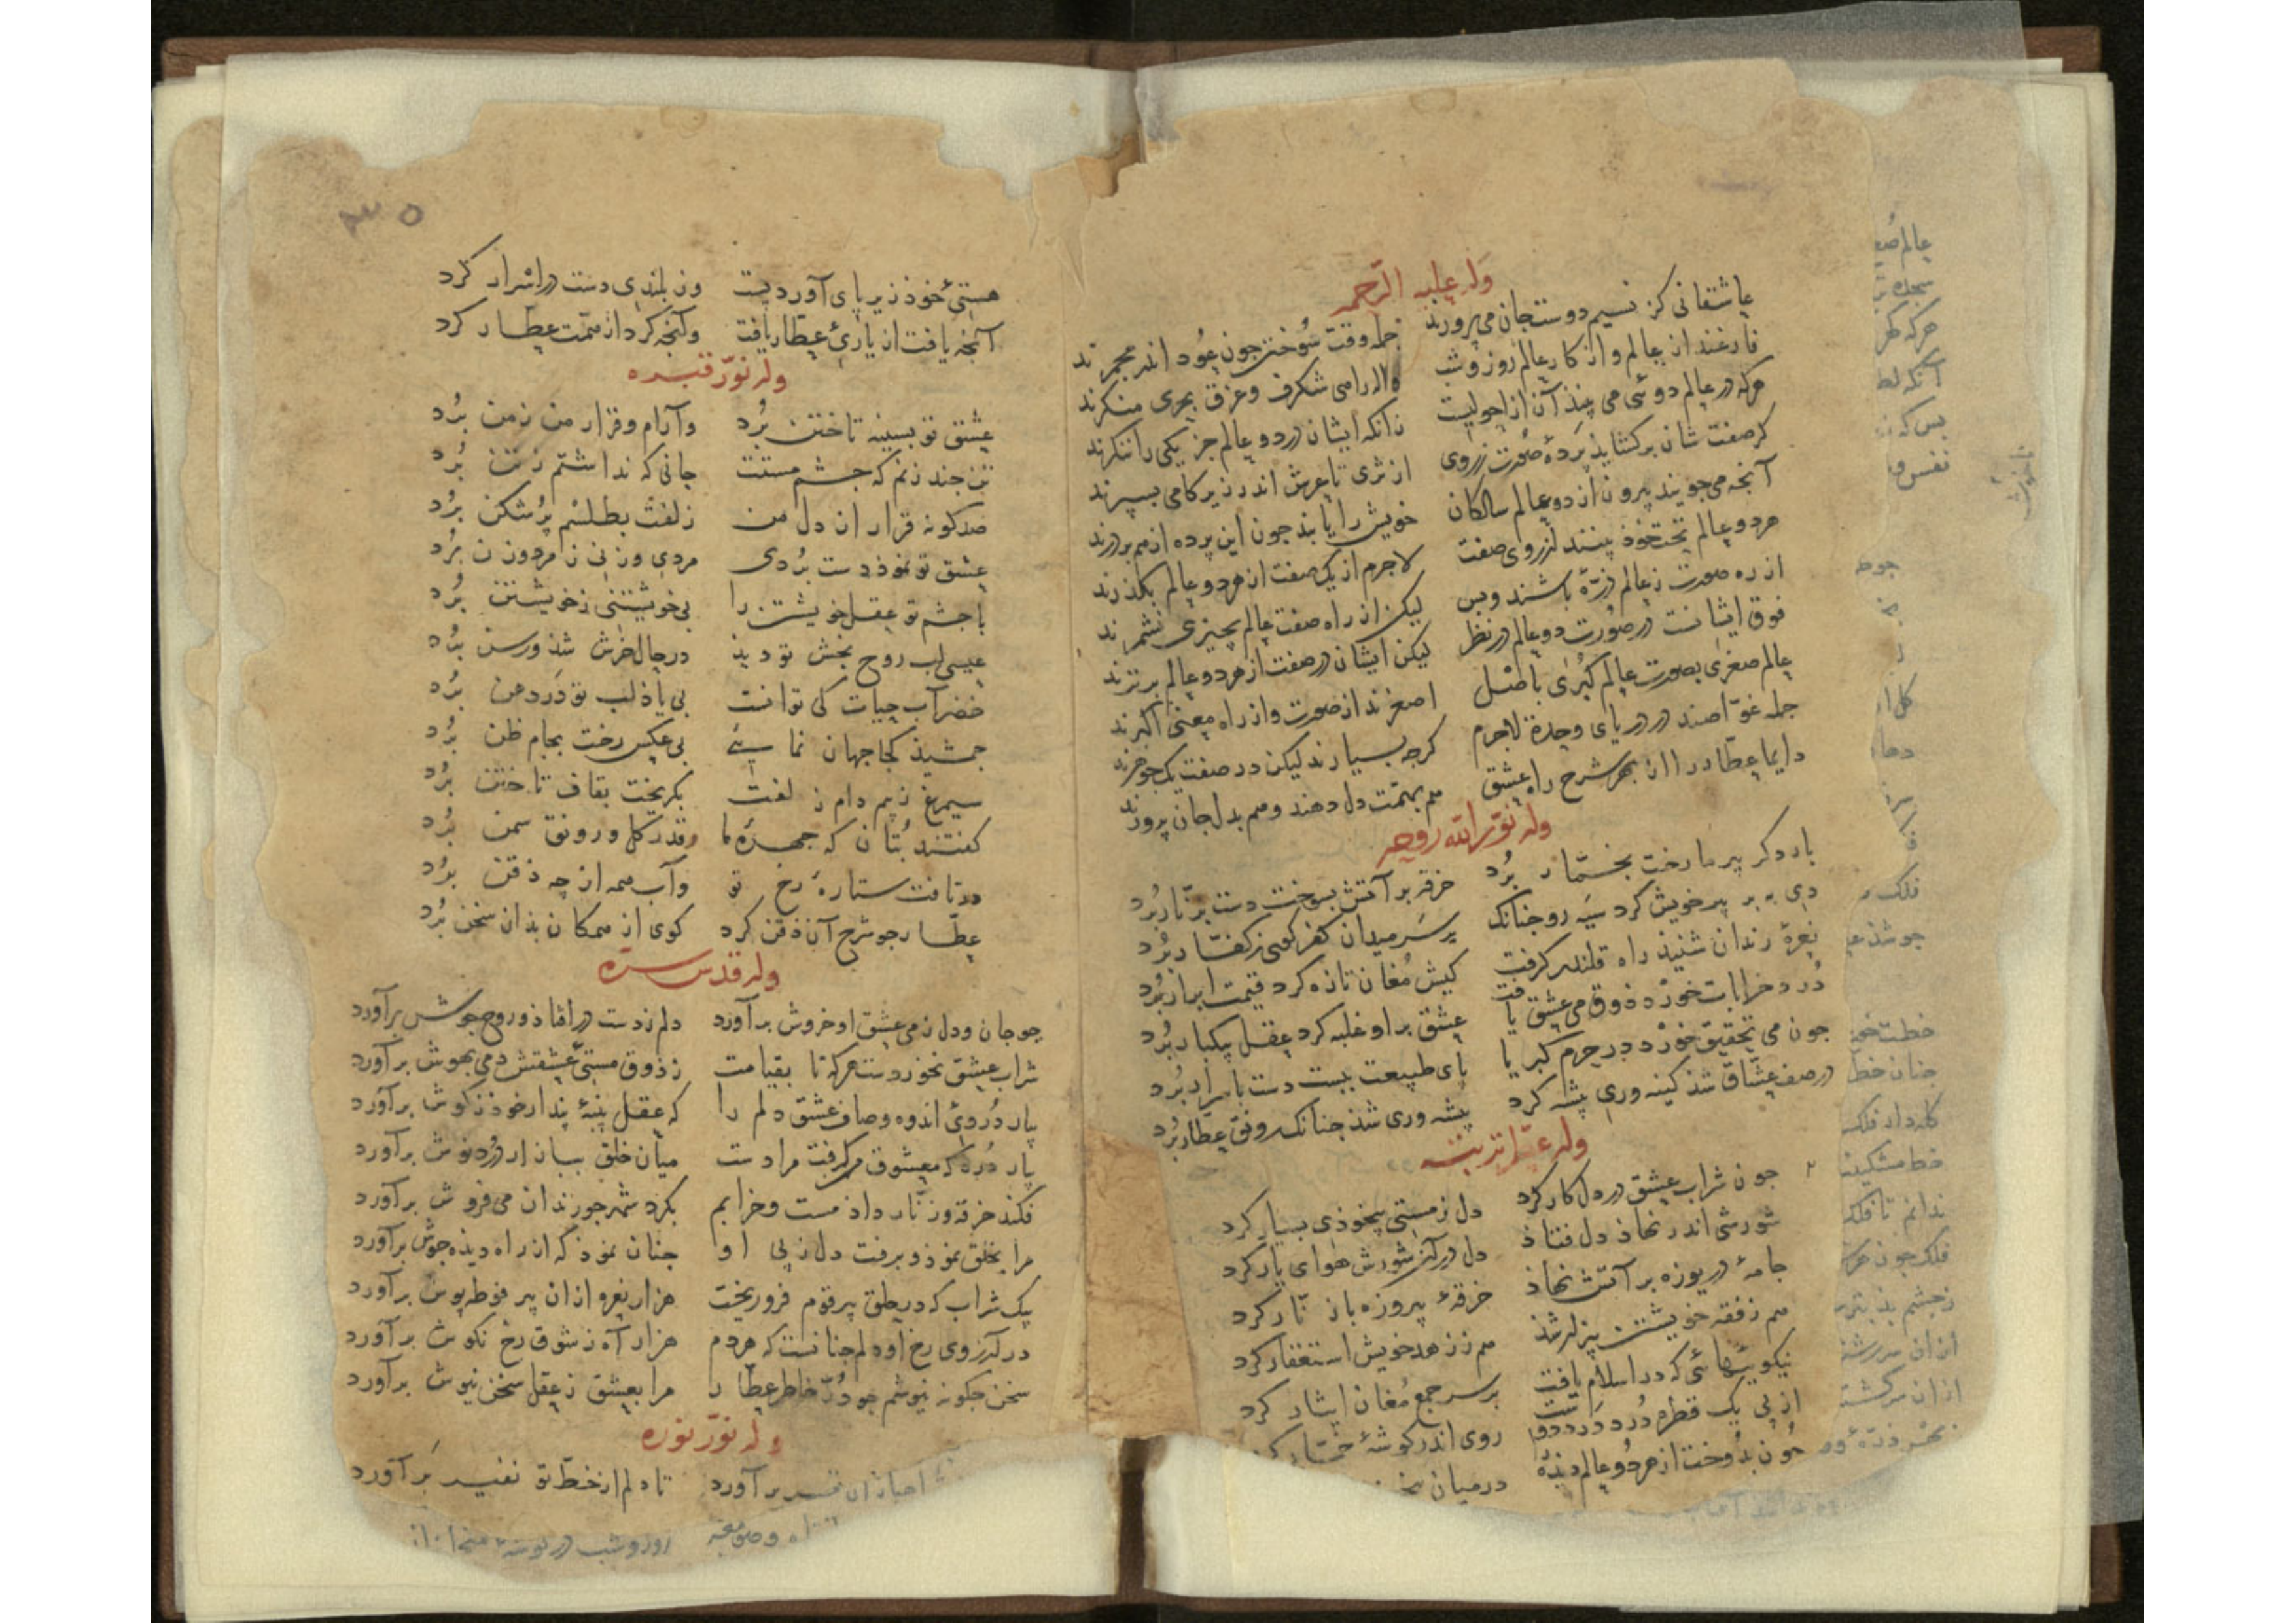 وله علیه الرحمه
عاشقانی کز نسیم دوست جان می پرورند جمله وقت سوختن جون عود اندر مجمرند
فارغند از عالم و از کار عالم روز و شب واله راهی شکرف و غرق بحری منکرند
هرکه در عالم دوئی می بیند آن از احولیست زانکه ایشان در دو عالم جز یکی را ننکرند
کر صفت شان برکشاید پرده صورت ز روی از ثری تا عرش اندر زیر کامی بسپرند
آنجه می جویند بیرون از دو عالم سالکان خویش را یابند جون این پرده از هم بر درند
هر دو عالم تخت خوذ بینند از روی صفت لاجرم از یک صفت از هر دو عالم بکذرند
از ره صورت ز عالم ذرّهٔ باشند و بس لیکن از راه صفت عالم بجیزی نشمرند
فوق ایشانست در صورت دو عالم در نظر لیکن ایشان در صفت از هر دو عالم برترند
عالم صغری بصورت عالم کبری باصل اصغرند از صورت و از راه معنی اکبرند
جمله غوّاصند در دریای وحدة لاجرم کرجه بسیارند لیکن در صفت یک جوهرند
دایما عطار را از بهر شرح راه عشق هم بهمّت دل دهند و هم بدل جان پرورند
وله نوّر الله روحه
بار دکر پیر ما رخت بخمّار برد خرقه بر آتش بسوخت دست بزنّار برد
دی به بر پیر خویش کرد سیه رو جنانک بر سر میدان کفر کوی ز کفّار برد
نعرهٔ رندان شنیذ راه قلندر کرفت کیش مغان تازه کرد قیمت ابرار برد
دُرد خرابات خورد ذوق می عشق یافت عشق بر او غلبه کرد عقل بیکبار برد
جون می تحقیق خورد در حرم کبریا پای طبیعت ببست دست باسرار برد
در صف عشّاق شذ کینه وری پیشه کرد پیشه وری شذ جنانک رونق عطار برد
وله
جون شراب عشق در دل کار کرد دل ز مستی بیخوذی بسیار کرد
شورشی اندر نهاذ دل فتاذ دل در آن شورش هوای یار کرد
جامهٔ دریوزه بر آتش نهاذ خرقهٔ پیروزه با زنّار کرد
هم ز فقه خویشتن بیزار شذ هم ز زهد خویش استغفار کرد
نیکوئیهائی که در اسلام یافت بر سر جمع مغان ایثار کرد
از پی یک قطره دُرد درد دوست روی اندر کوشهٔ خمّار کرد
جون بدوخت از هر دو عالم دیذه را در میان
۳۵
هستیٔ خوذ زیر پای آورد پست وز بلندی دست در اسرار کرد
آنجه یافت از یاریٔ عطّار یافت وآنجه کرد از همّت عطّار کرد
وله نوّر قبره
عشق تو بسینه تاختن برد وآرام و قرار من ز من برد
تن جند زنم که جشم مستت جانی که نداشتم ز تن برد
صد کونه قرار از دل من زلفت بطلسم پر شکن برد
عشق تو نموذ دست بردی مردی و زنی ز مرد و زن برد
با جشم تو عقل خویشتن را بی خویشتنی ز خویشتن برد
عیسی لب روح بخش تو دیذ در حال خرش شذ و رسن برد
خضر آب حیات کی توانست بی یاذ لب تو در دهن برد
جمشیذ کجا جهان نمائی بی عکس رخت بجام ظن برد
سیمرغ ز بیم دام زلفت بکریخت بقاف تاختن برد
کفتند بتان که جهرهٔ ما قدر کل و رونق سمن برد
در تافت ستارهٔ رخ تو وآب همه از جه ذقن برد
عطّار جو شرح آن ذقن کرد کوی از همکان بذان سخن برد
وله قدّس سرّه
جو جان و دل ز می عشق او خروش برآورد دلم ز دست در افتاذ و روح جوش برآورد
شراب عشق نخوردست هرکه تا بقیامت ز ذوق مستی عشقش دمی بهوش برآورد
بیار دُردیٔ اندوه و صاف عشق دلم را که عقل پنبهٔ پندار خوذ ز کوش برآورد
بیار دُرد که معشوق من کرفت مرا مست میان خلق بیازار دُرد نوش برآورد
فکند خرقه و زنّار داذ مست و خرابم بکرد شهر جو رندان می فروش برآورد
مرا بخلق نموذ و برفت دل ز پی او جنان نموذ که از راه دیذه جوش برآورد
یک شراب که در حلق پیر قوم فرو ریخت هزار نعره از ان پیر فوطه پوش برآورد
در آرزوی رخ او دلم جنانست که هر دم هزار آه ز شوق رخ نکوش برآورد
سخن جکونه نیوشم جو دُرّ خاطر عطّار مرا بعشق ز عقل سخن نیوش برآورد
وله نوّر نوره
تا دلم از خطّ تو نفیر برآورد
روز و شب در